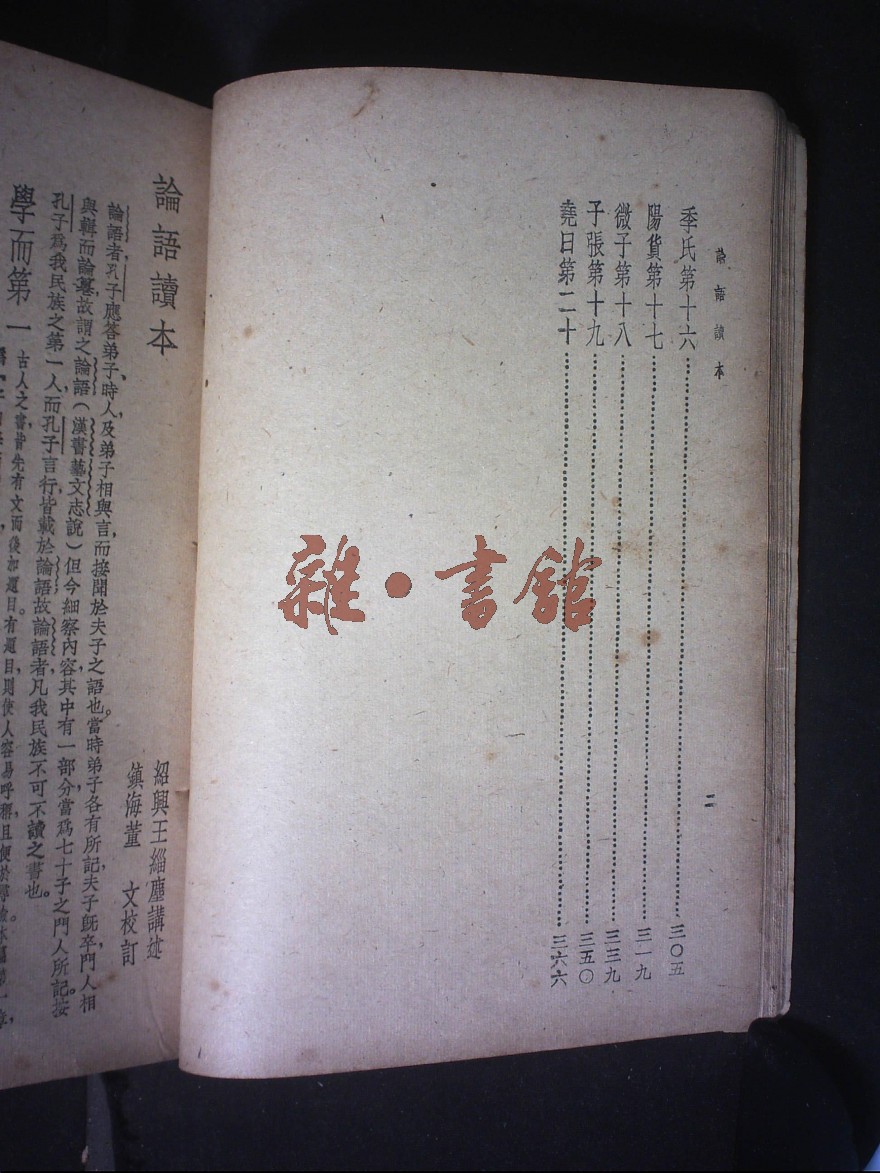 論語讀本
二
季氏第十六……三〇五
陽貨第十七……三一九
微子第十八……三三九
子張第十九……三五〇
堯曰第二十……三六六
雜·書館
論語讀本
紹興王緇塵講述
鎮海董 文校訂
論語者,孔子應答弟子、時人,及弟子相與言,而接聞於夫子之語也。當時弟子各有所記,夫子旣卒,門人相
與輯而論纂,故謂之論語(漢書藝文志說)但今細察內容,其中有一部分,當爲七十子之門人所記。按
孔子爲我民族之第一人,而孔子言行,皆載於論語,故論語者,凡我民族不可不讀之書也。
學而第一
古人之書,皆先有文而後加題目。有題目,則使人容易呼稱,且便於尋檢。本篇第一章,